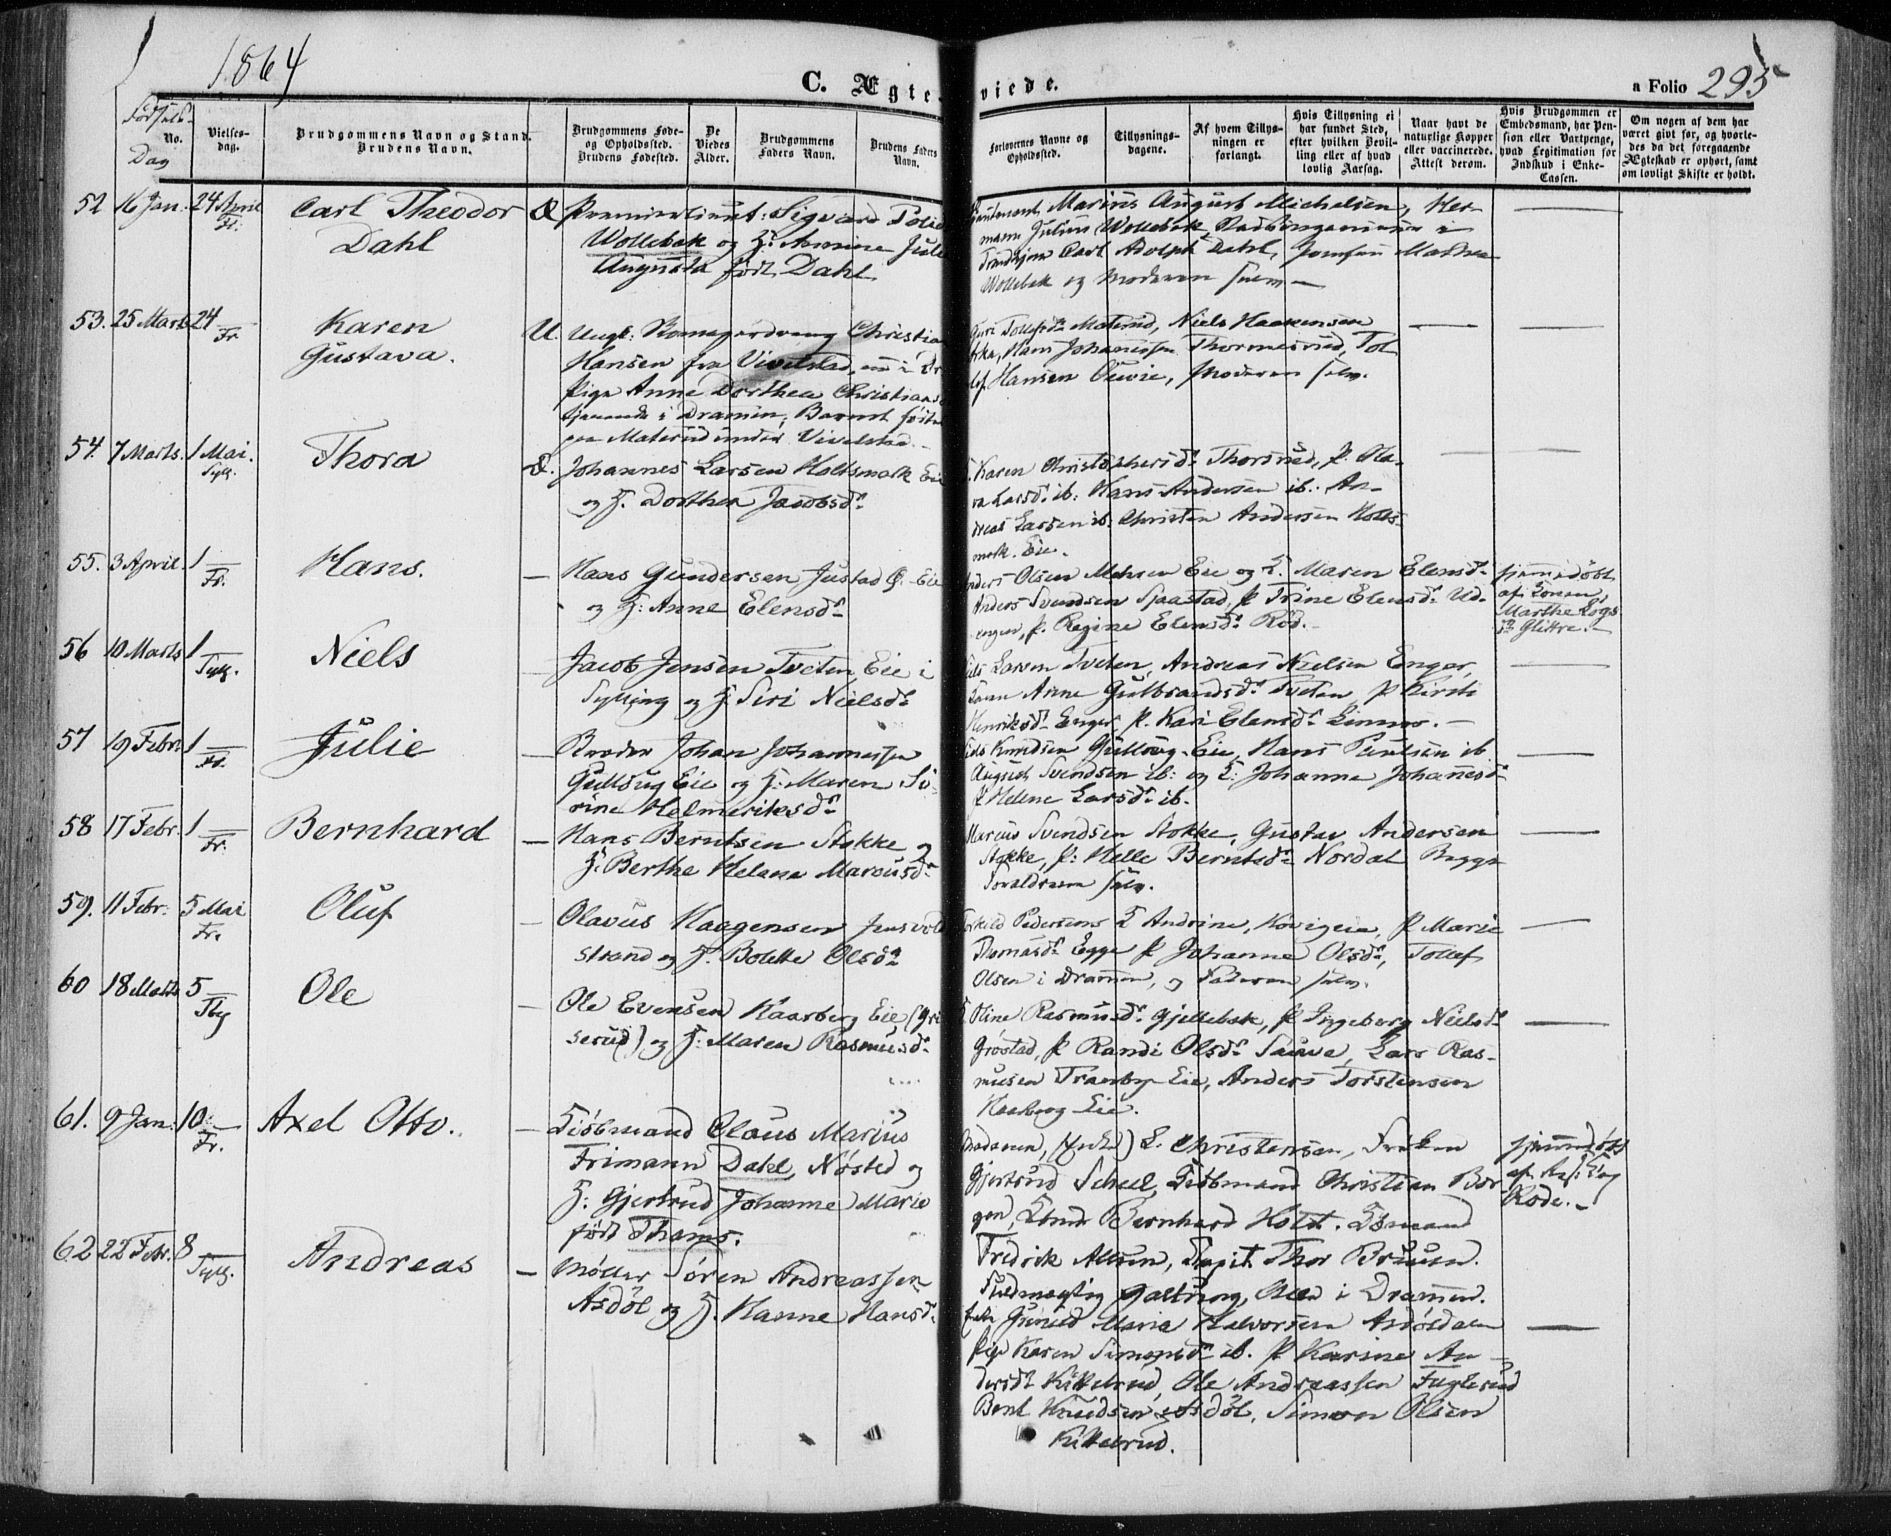 1864
C. Ægteviede.
a Folio 295
Fødsels-
Dag
No.
Vielses-
dag.
Brudgommens Navn og Stand.
Brudens Navn.
Brudgommens Føde-
og Opholdssted.
Brudens Fødested.
De
Viedes
Alder.
Brudgommens
Faders Navn.
Brudens Faders
Navn.
Forlovernes Navne og
Opholdssted.
Tillysnings-
dagene.
Af hvem Tillys-
ningen er
forlangt.
Hvis Tillysning ei
har fundet Sted,
efter hvilken Bevil-
ling eller af hvad
lovlig Aarsag.
Naar havt de
naturlige Kopper
eller vaccinerede.
Attest derom.
Hvis Brudgommen er
Embedsmand, har Pen-
sion eller Vartpenge,
hvad Legitimation for
Indskud i Enke-
Cassen.
Om nogen af dem har
været givt før, og hvorle-
des da det foregaaende
Ægteskab er ophørt, samt
om lovligt Skifte er holdt.
52 16 Jan. 24 April Fr. Carl Theodor
Dahl
Æ Premierlieut: Sigvard
Wollebæk og H: Annine Julie
Augusta født Dahl
Marius August Michelsen, Her-
mann Julius Wollebæk
Carl Adolph Dahl, Jomfru Mathea
Wollebæk og Moderen selv
53. 25 Marts 24 Fr Karen
Gustava.
U. Ungk: Christian
Hansen fra Vivelstad, nu i Dr
Pige Anne Dorthea Christians
tjenende i Drammen, Barnet født
paa Materud under Vivelstad.
Materud, Niels Haakensen
Hans Johannessen Thormesrud, Tol
lef Hansen, Moderen selv.
54. 7 Marts. 1 Mai. Sylg. Thora
Æ. Johannes Larsen Holtsmark Eie
og H. Dorthea Jacobsdr
Karen Christophersdr Thorsrud, P. Ola-
va Larsdr ib: Hans Andersen ib: An-
dreas Larsen ib: Christen Andersen Holts
mark. Eie.
55. 3 April. 1 Fr. Hans.
Hans Gundersen Justad Ø. Eie
og H: Anne Elensdr
Anders Olsen Mehren Eie og K. Maren Elensdr
Anders Svendsen Sjaastad, P Trine Elensdr Ud-
engen, P. Regine Elensdr Rød.
hjemmedøbt
af Konen
Marthe
Glittre.
56 10 Marts 1 Sylg. Niels
Jacob Jensen Tveten Eie i
Sylling og H. Siri Nielsdr
Niels Larsen Tveten, Andreas Nielsen Enger,
Konen Anne Gulbrandsdr Tveten P Kirsti
Henriksdr Enger P. Kari Elensdr Linnes.
57 19 Febr. 1 Fr. Julie
Johan Johannessen
Gullaug Eie og H: Maren Se-
rine Helmeriksdr
Niels Knudsen Gullaug Eie, Hans Paulsen ib
August Svendsen ib: og K: Johanne Johannesdr
P Helene Larsdr ib.
58 17 Febr. 1 Fr. Bernhard
Hans Berntsen Stokke og
H. Berthe Helene Marcusdr
Marcus Svendsen Stokke, Gustav Andersen
Stokke, P: Helle Berntsdr Nordal Begge
Forældrene selv.
59. 11 Febr: 5 Mai Fr. Oluf
Olavus Haagensen Jensvold
strand og H. Bolette Olsdr
Torkild Pedersens K Andrine, P Marie
Thomasdr Egge P Johanne Olsdr, Tollef
Olsen i Dramm, og Faderen selv.
60 18 Marts 5 Ole
Ole Evensen Haarberg Eie (Gri
serud) og H: Maren Rasmusdr
K. Oline Rasmusdr Gjellebæk, P Ingeborg Nielsdr
Grøstad, P Randi Olsdr Saave, Lars Ras-
musen Tranby Eie, Anders Torstensen
Haarberg Eie.
61. 9 Jan. 10 Fr. Axel Otto.
Kjøbmand Claus Marius
Frimann Dahl, Nøsted og
H. Gjertrud Johanne Marie
født Thams.
Madamen, (Enke) L. Christensen, Frøken
Gjertrud Scheel, Kjøbmand Christian Bor
gen, Bernhard Holst.
Fredrik Allum, Thor Bruusn.
Fuldmægtig Galtung, Alle i Drammen.
hjemmedøbt
af
Rode.
62 22 Febr. 8 Sylg. Andreas
Møller Søren Andreassen
Asdøl og H. Hanne Hansdr
Maria Halvorsen Asdøsdalen
Pige Karen Simonsdr ib. P Karine An-
dersdr Kittelrud, Ole Andreassen Fuglerud
Bent Knudsen Asdøl, Simon Olsen
Kittelrud.